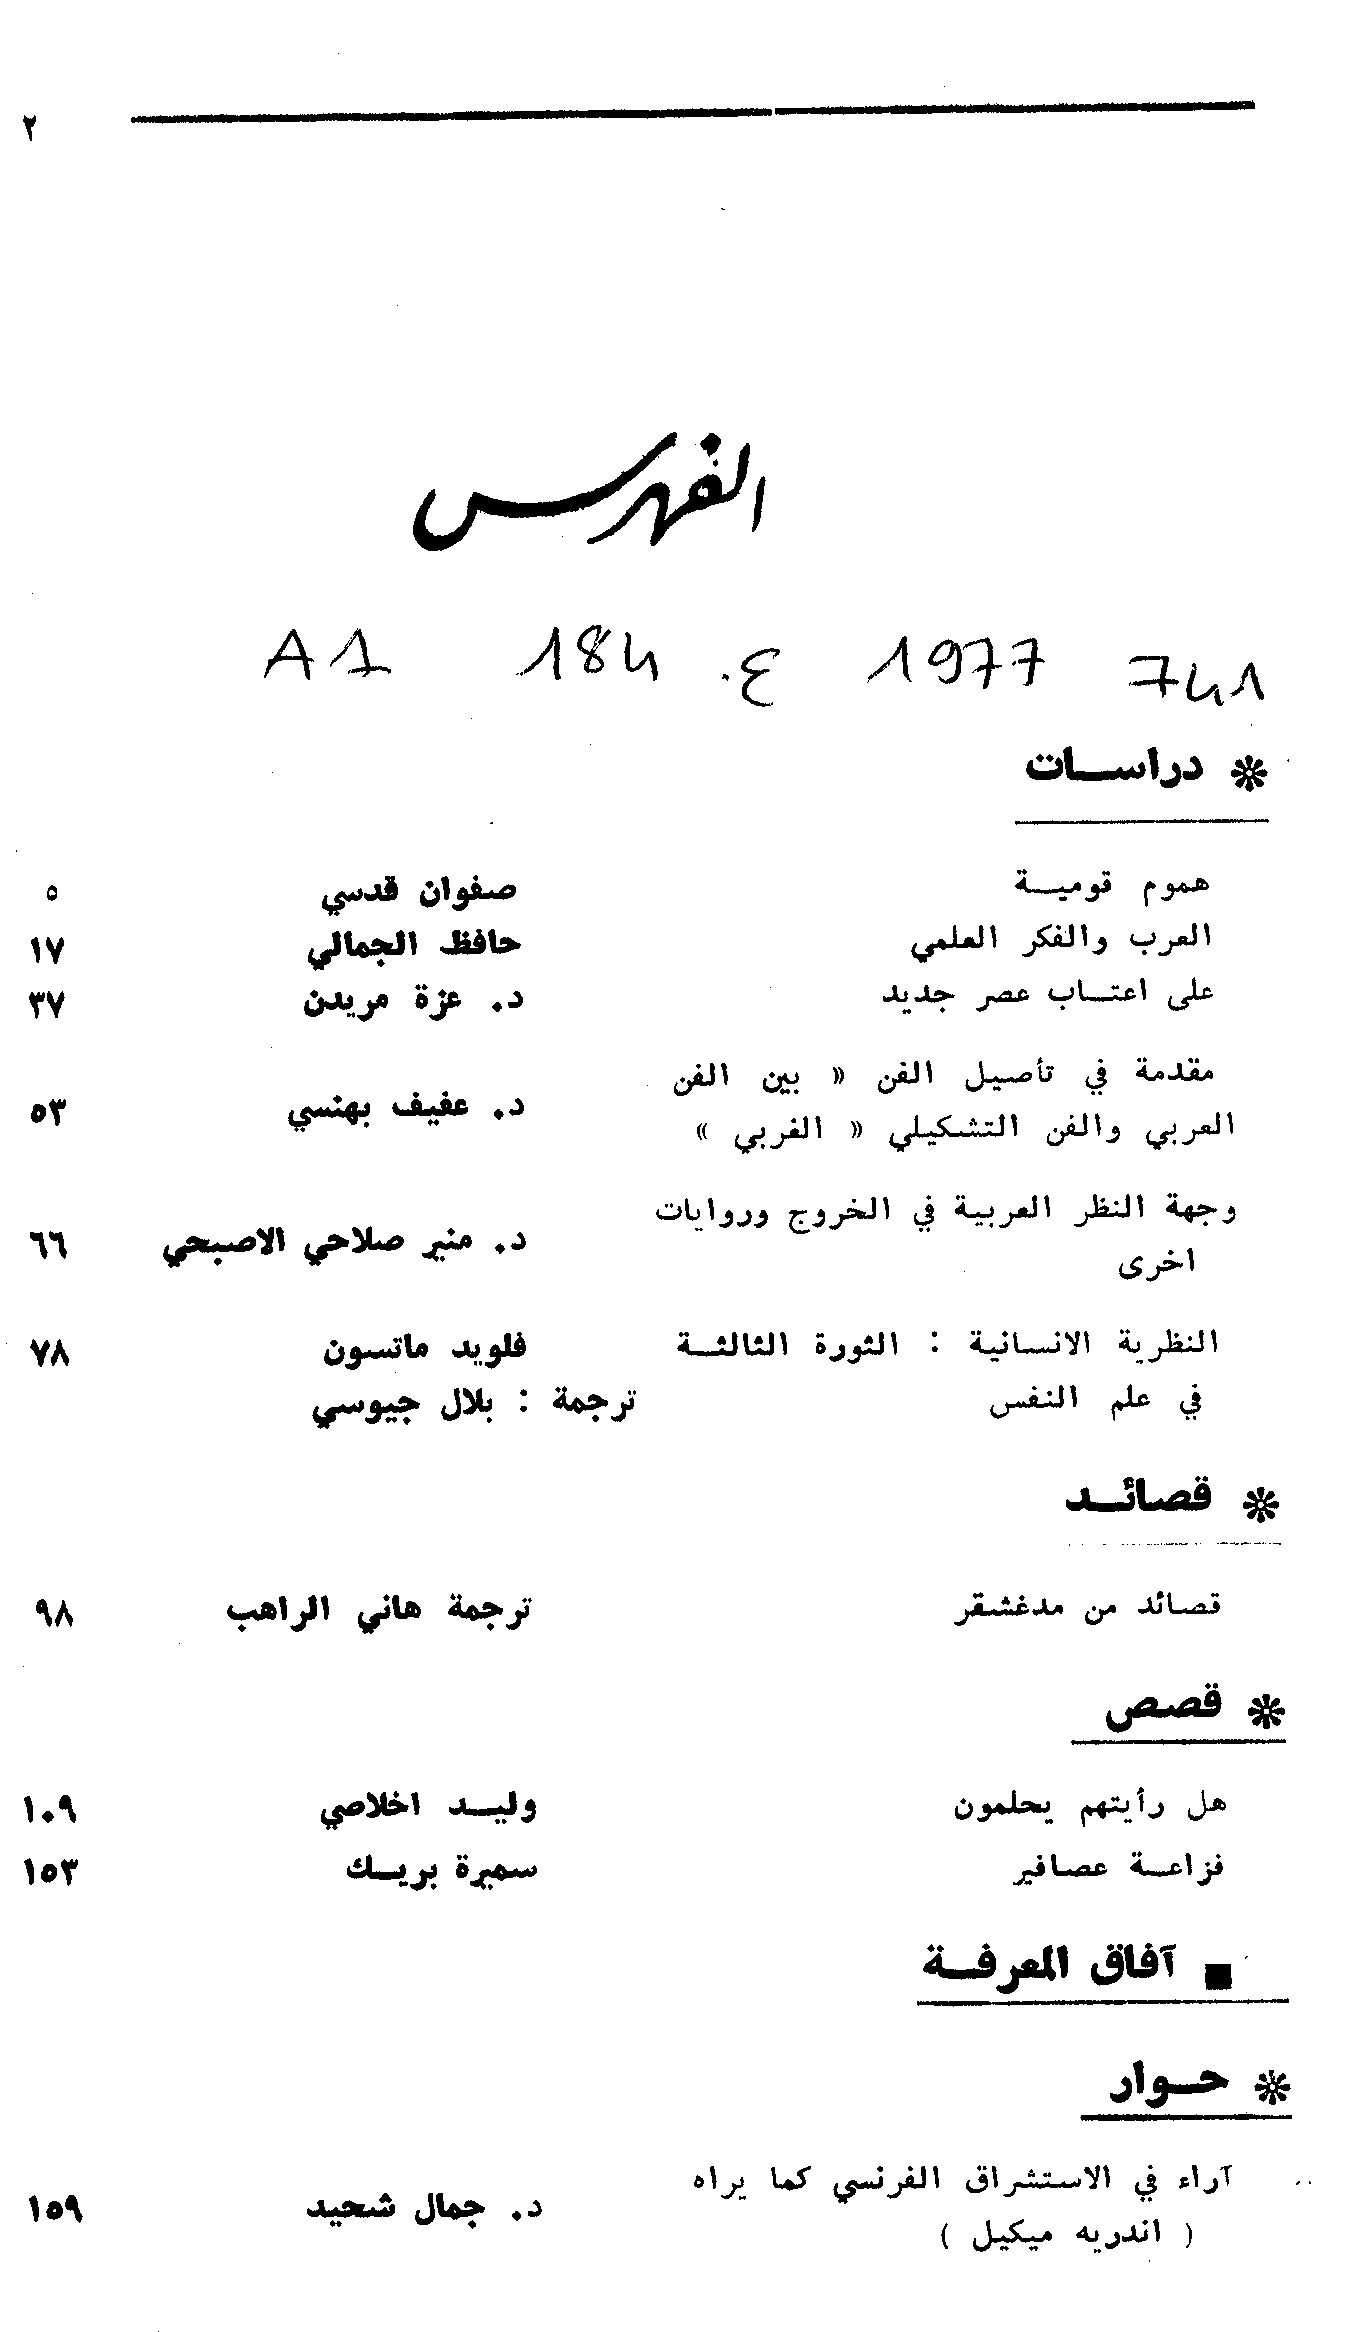 ٢
الفهرس
A1 184 ع. 1977 741
❊ دراسات
هموم قومية صفوان قدسي ٥
العرب والفكر العلمي حافظ الجمالي ١٧
على اعتاب عصر جديد د. عزة مريدن ٣٧
مقدمة في تأصيل الفن « بين الفن
العربي والفن التشكيلي « الغربي » د. عفيف بهنسي ٥٣
وجهة النظر العربية في الخروج وروايات
اخرى د. منير صلاحي الاصبحي ٦٦
النظرية الانسانية : الثورة الثالثة فلويد ماتسون ٧٨
في علم النفس ترجمة : بلال جيوسي
❊ قصائد
قصائد من مدغشقر ترجمة هاني الراهب ٩٨
❊ قصص
هل رأيتهم يحلمون وليد اخلاصي ١٠٩
فزاعة عصافير سميرة بريك ١٥٣
■ آفاق المعرفة
❊ حوار
آراء في الاستشراق الفرنسي كما يراه
( اندريه ميكيل ) د. جمال شحيد ١٥٩